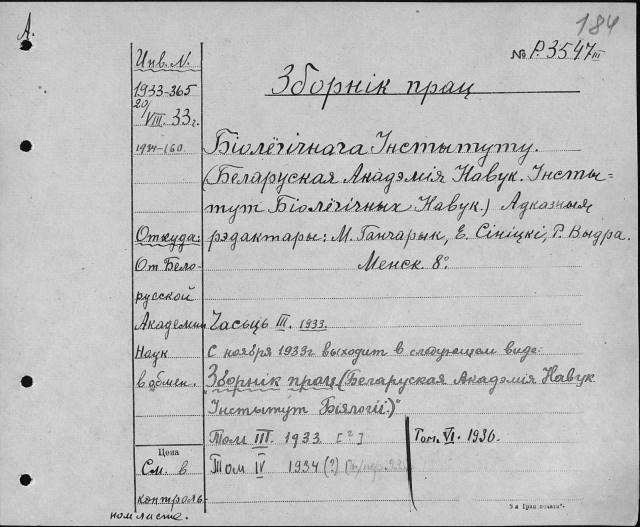 А.
184
Инв. N.
№ Р.3547 III
Зборнік прац
1933-365
20/VIII. 33 г.
1934-160
Біолёгічнага Інстытуту.
(Беларуская Акадэмія Навук. Інсты=
тут Біолёгічных Навук.) Адказныя
Откуда:
рэдактары: М. Ганчарык, Е. Сініцкі, Р. Выдра.
От Бело-
Менск. 8°.
русской
Академии
Часьць III. 1933.
Наук
С ноября 1933 г. выходит в следующем виде:
в обмен.
"Зборнік прац (Беларуская Акадэмія Навук
Інстытут Біялогіі.)"
Том III. 1933 [?]
Том. VI. 1936.
Цена
См. в
Том IV 1934 (?)
контроль-
ном листе.